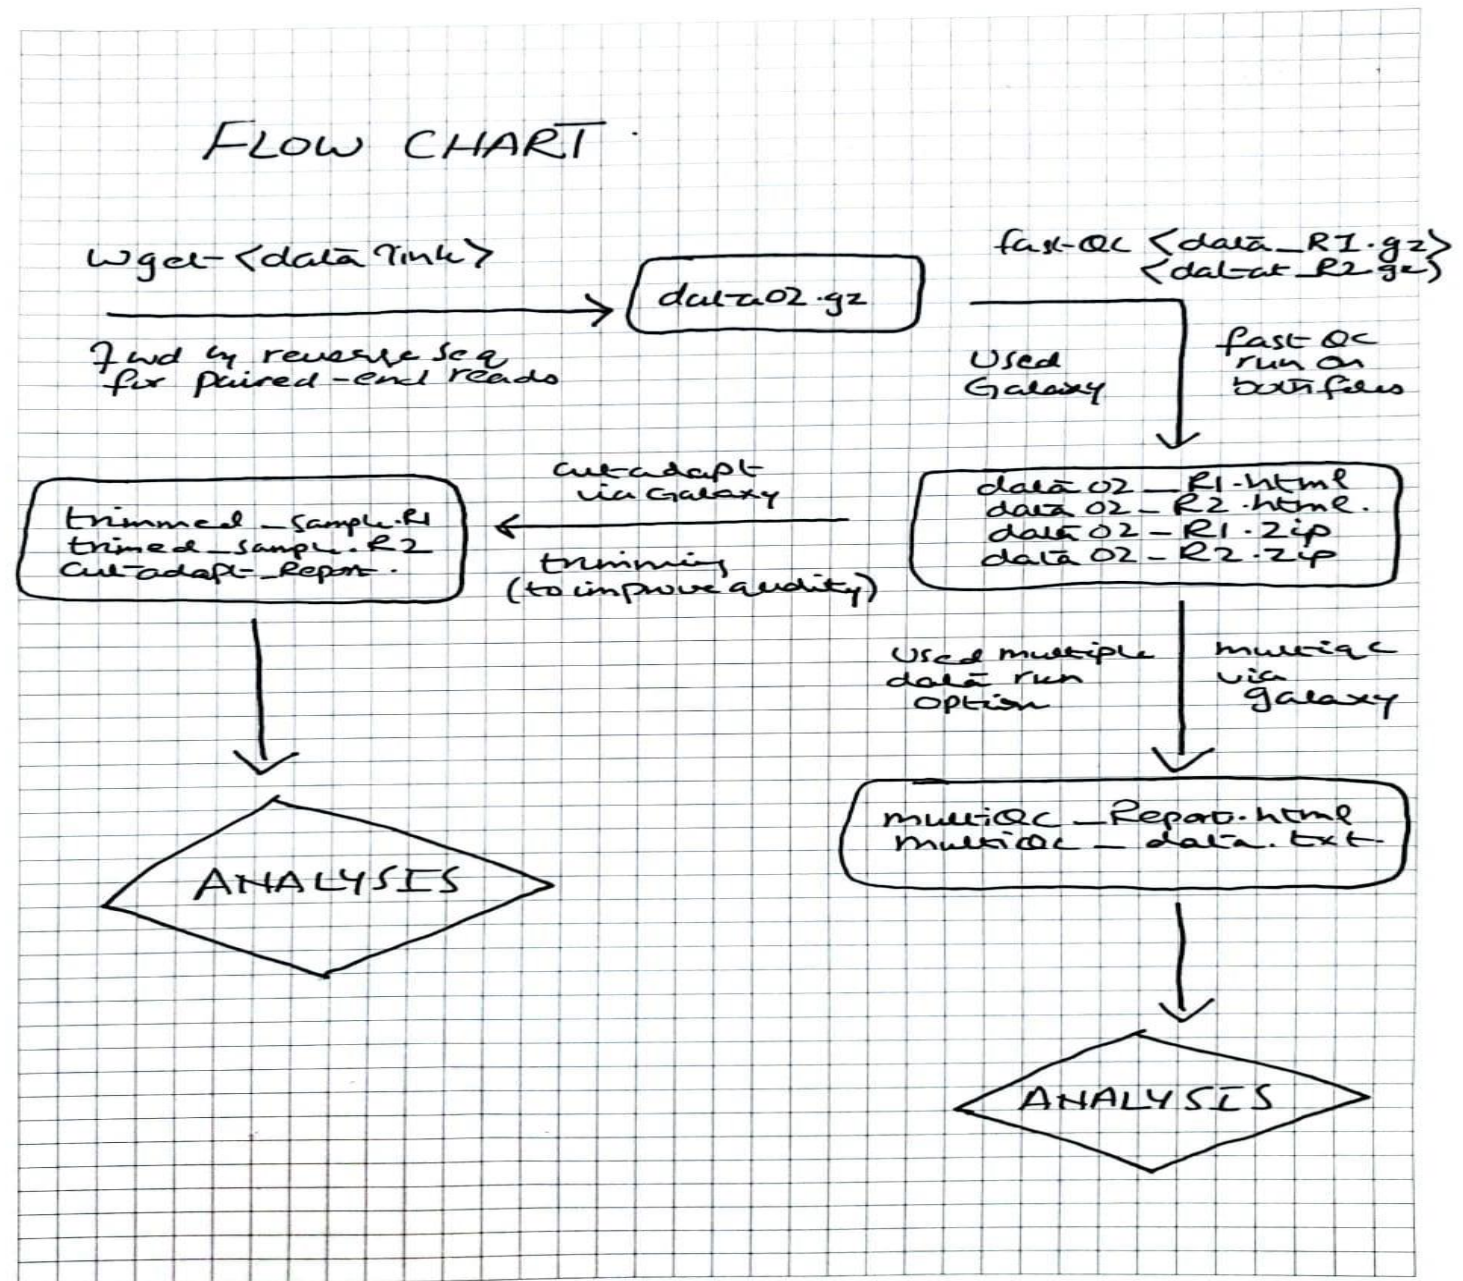 FLOW CHART.
wget <data link>
fwd & reverse seq
for paired-end reads
data02.gz
fast-QC <data_R1.gz>
<datat_R2.gz>
Used
Galaxy
fast QC
run on
both files
data02_R1.html
data02_R2.html.
data02_R1.zip
data02_R2.zip
cutadapt
via Galaxy
trimming
(to improve quality)
trimmed_sample.R1
trimed_sample.R2
cutadapt_Report.
ANALYSIS
Used multiple
data run
option
multiqc
via
galaxy
multiQC_Report.html
multiQC_data.txt.
ANALYSIS